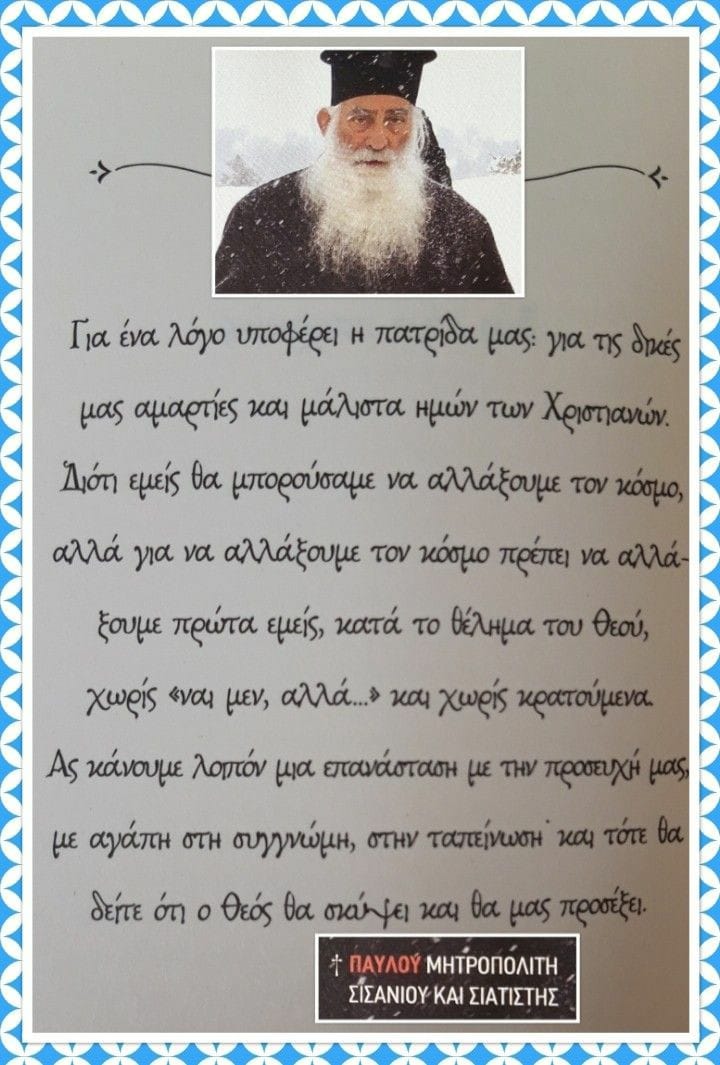 Για ένα λόγο υποφέρει η πατρίδα μας: για τις δικές
μας αμαρτίες και μάλιστα ημών των Χριστιανών.
Διότι εμείς θα μπορούσαμε να αλλάξουμε τον κόσμο,
αλλά για να αλλάξουμε τον κόσμο πρέπει να αλλά-
ξουμε πρώτα εμείς, κατά το θέλημα του Θεού,
χωρίς «ναι μεν, αλλά...» και χωρίς κρατούμενα.
Ας κάνουμε λοιπόν μια επανάσταση με την προσευχή μας,
με αγάπη στη συγγνώμη, στην ταπείνωση· και τότε θα
δείτε ότι ο Θεός θα σκύψει και θα μας προσέξει.
† ΠΑΥΛΟΥ ΜΗΤΡΟΠΟΛΙΤΗ
ΣΙΣΑΝΙΟΥ ΚΑΙ ΣΙΑΤΙΣΤΗΣ